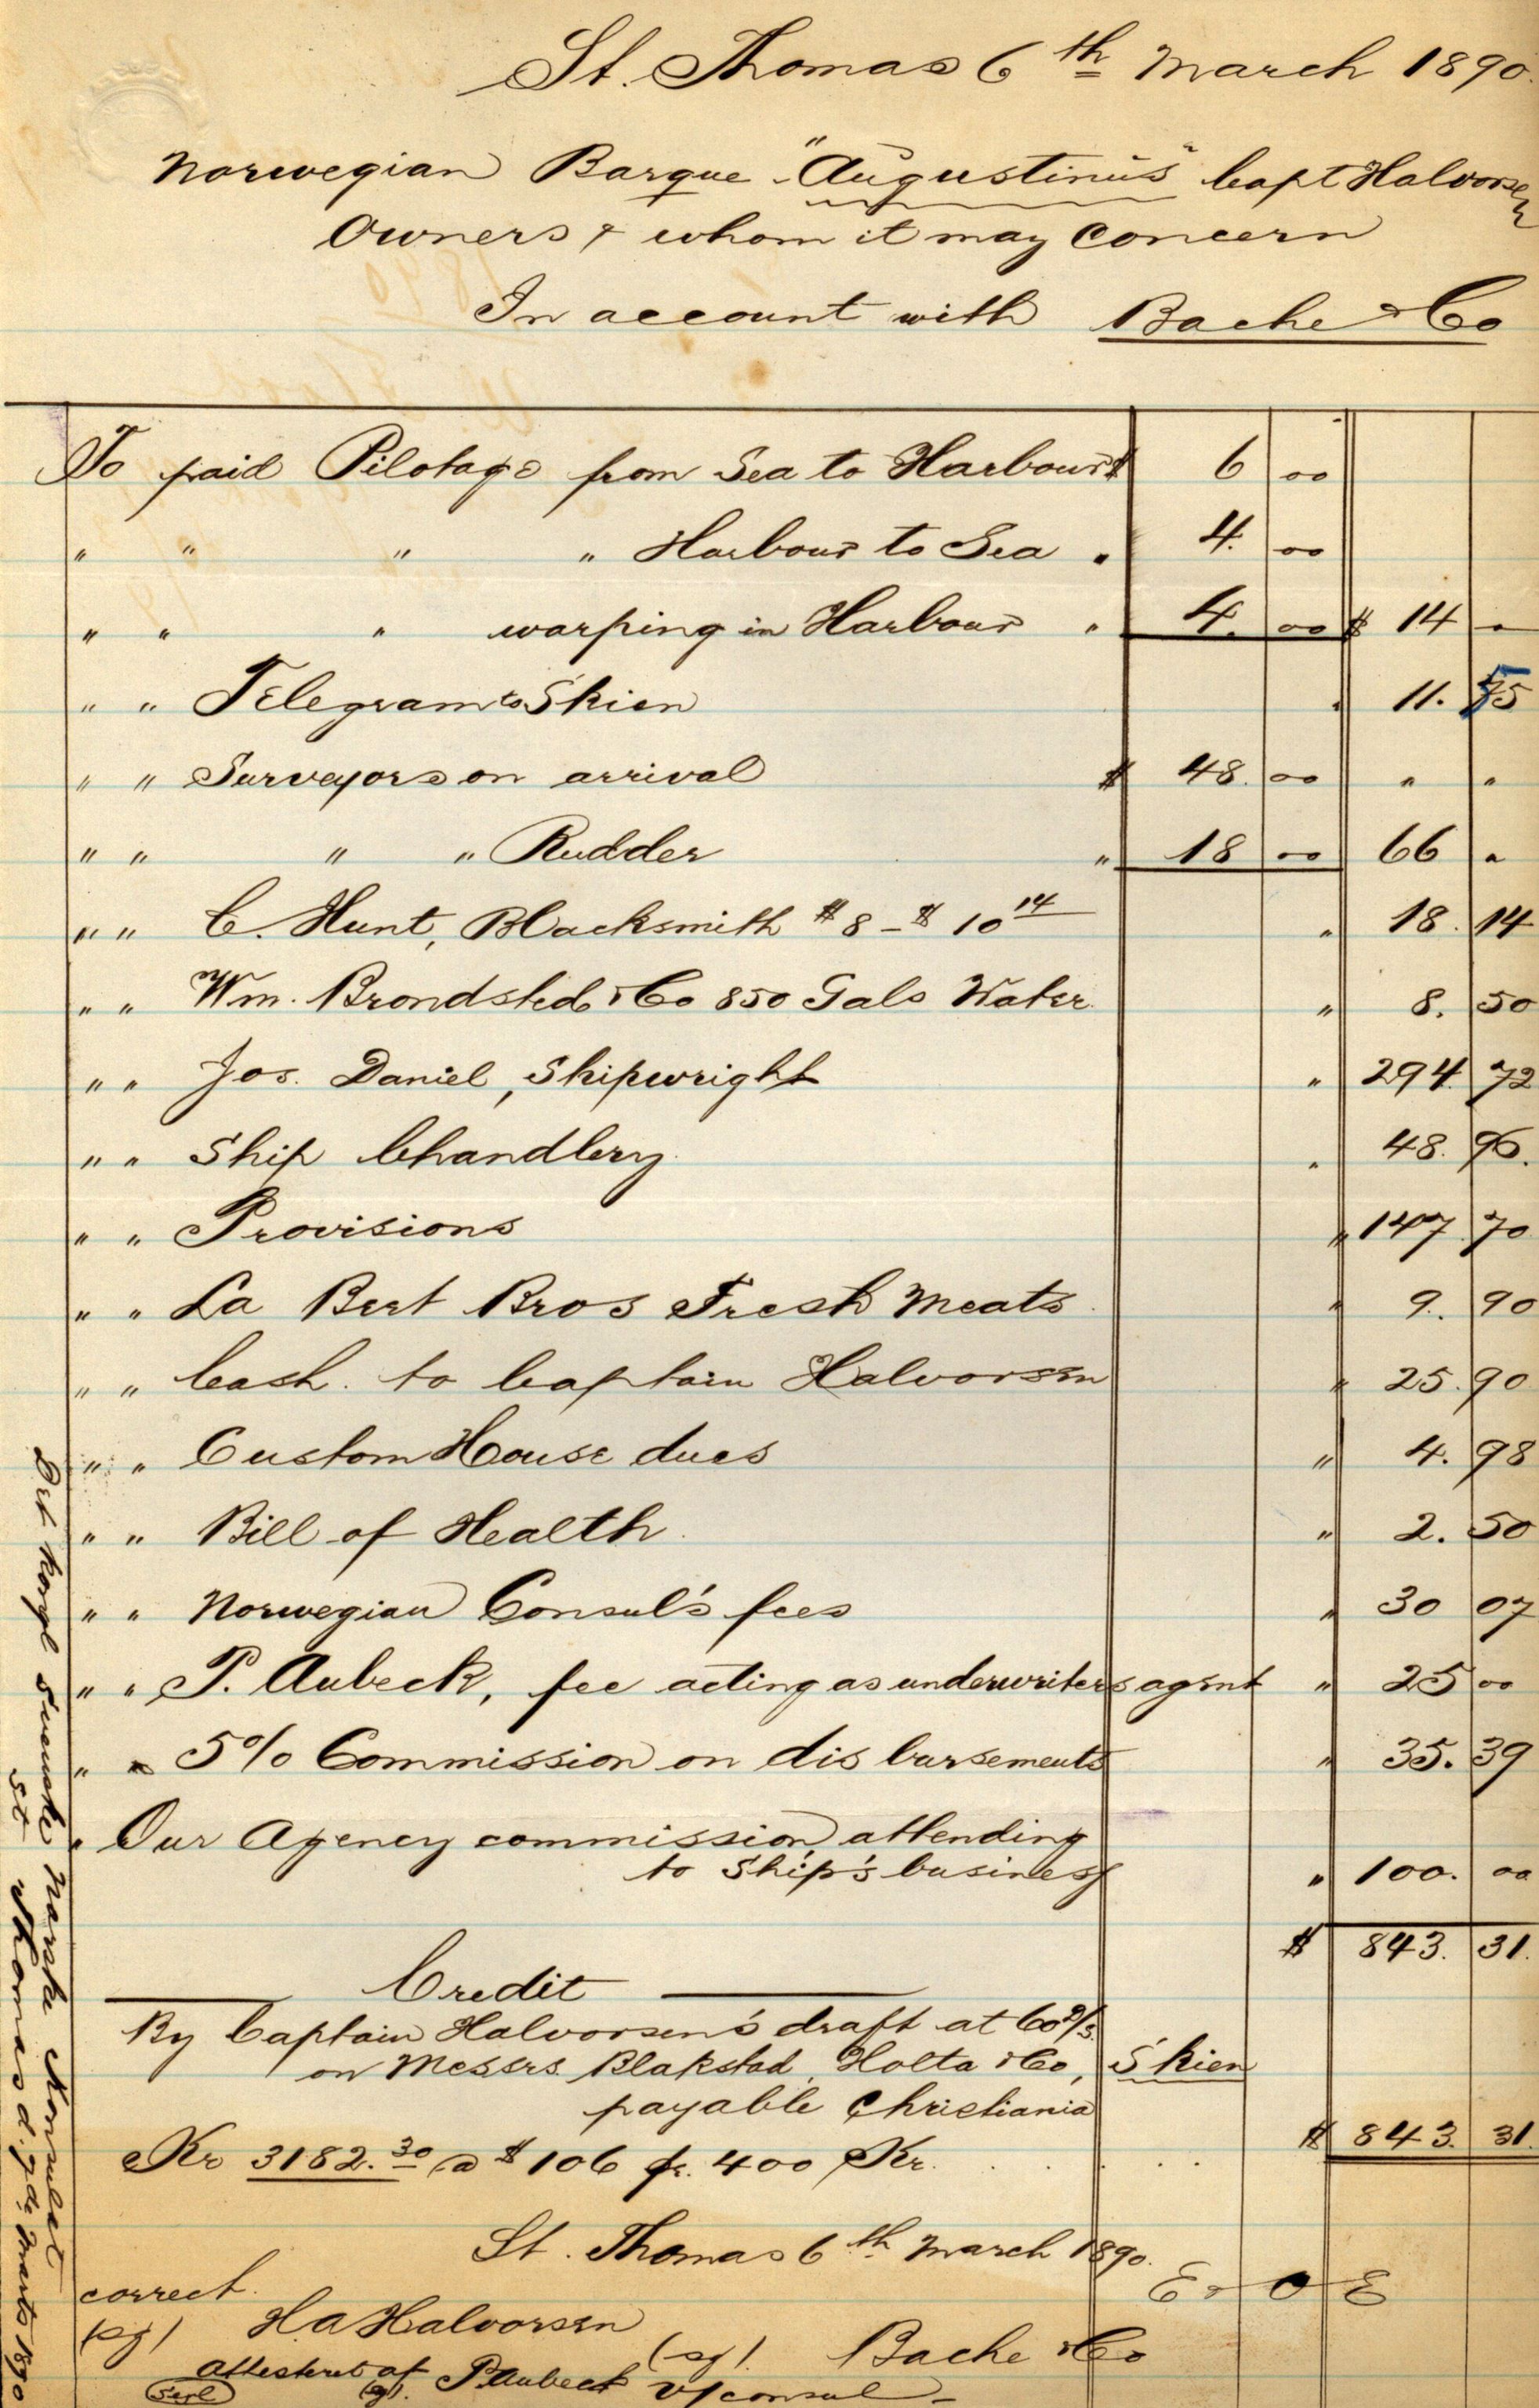 St. Thomas 6th March 1890.
Norwegian Barque "Augustinus" Capt Halvorsen
Owners & whom it may Concern
In account with Bache & Co
To paid Pilotage from Sea to Harbour $ 6 00
" " " " Harbour to Sea " 4. 00
" " " warping in Harbour " 4. 00 $ 14 "
" " Telegram to Skien " 11. 55
" " Surveyors on arrival $ 48. 00 " "
" " " " Rudder " 18 00 66 "
" " C. Hunt, Blacksmith $ 8 - $ 10 14 " 18. 14
" " Wm. Brondsted & Co 850 Gals Water " 8. 50
" " Jos. Daniel, Shipwright " 294. 72
" " Ship Chandlery " 48. 96.
" " Provisions " 147. 70
" " La Bert Bros Fresh Meats " 9. 90
" " Cash to Captain Halvorsen " 25. 90
" " Custom House dues " 4. 98
" " Bill of Health " 2. 50
" " Norwegian Consul's fees " 30 07
" " P. Aubeck, fee acting as underwriters agent " 25 00
" " 5% Commission on disbursements " 35. 39
" Our Agency commission attending
to Ship's business " 100. 00
$ 843. 31.
Credit
By Captain Halvorsen's draft at 60 d/s.
on Messrs. Blakstad, Holta & Co, Skien
payable Christiania
Kr 3182.30 @ $ 106 fr. 400 Kr. . . . . $ 843. 31.
St. Thomas 6th March 1890.
E & O E
correct.
(sg) H A Halvorsen
(sg). Bache & Co
attesteret af P Aubeck V/consul
Segl (sg).
Det kongl Svenske Norske Konsulat
St Thomas d. 7de Marts 1890